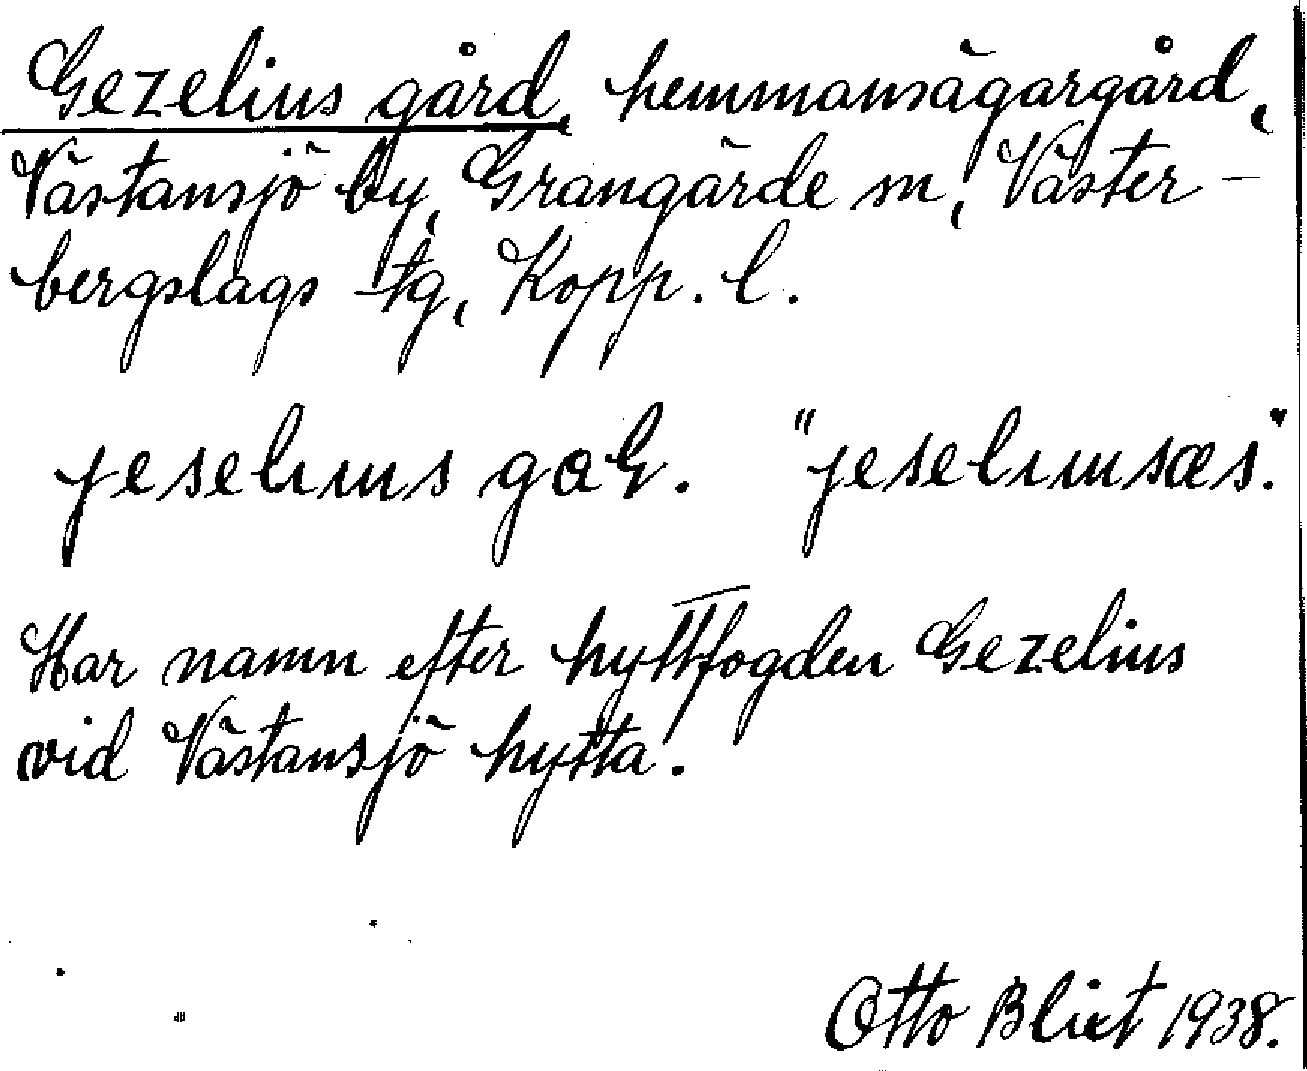 Gezelius gård, hemmansägargård,
Västansjö by, Grangärde sn, Väster-
bergslags tg, Kopp. l.
jeselıus gaɫ. "jeselıusæs".
Har namn efter hyttfogden Gezelius
vid Västansjö hytta.
Otto Blixt 1938.